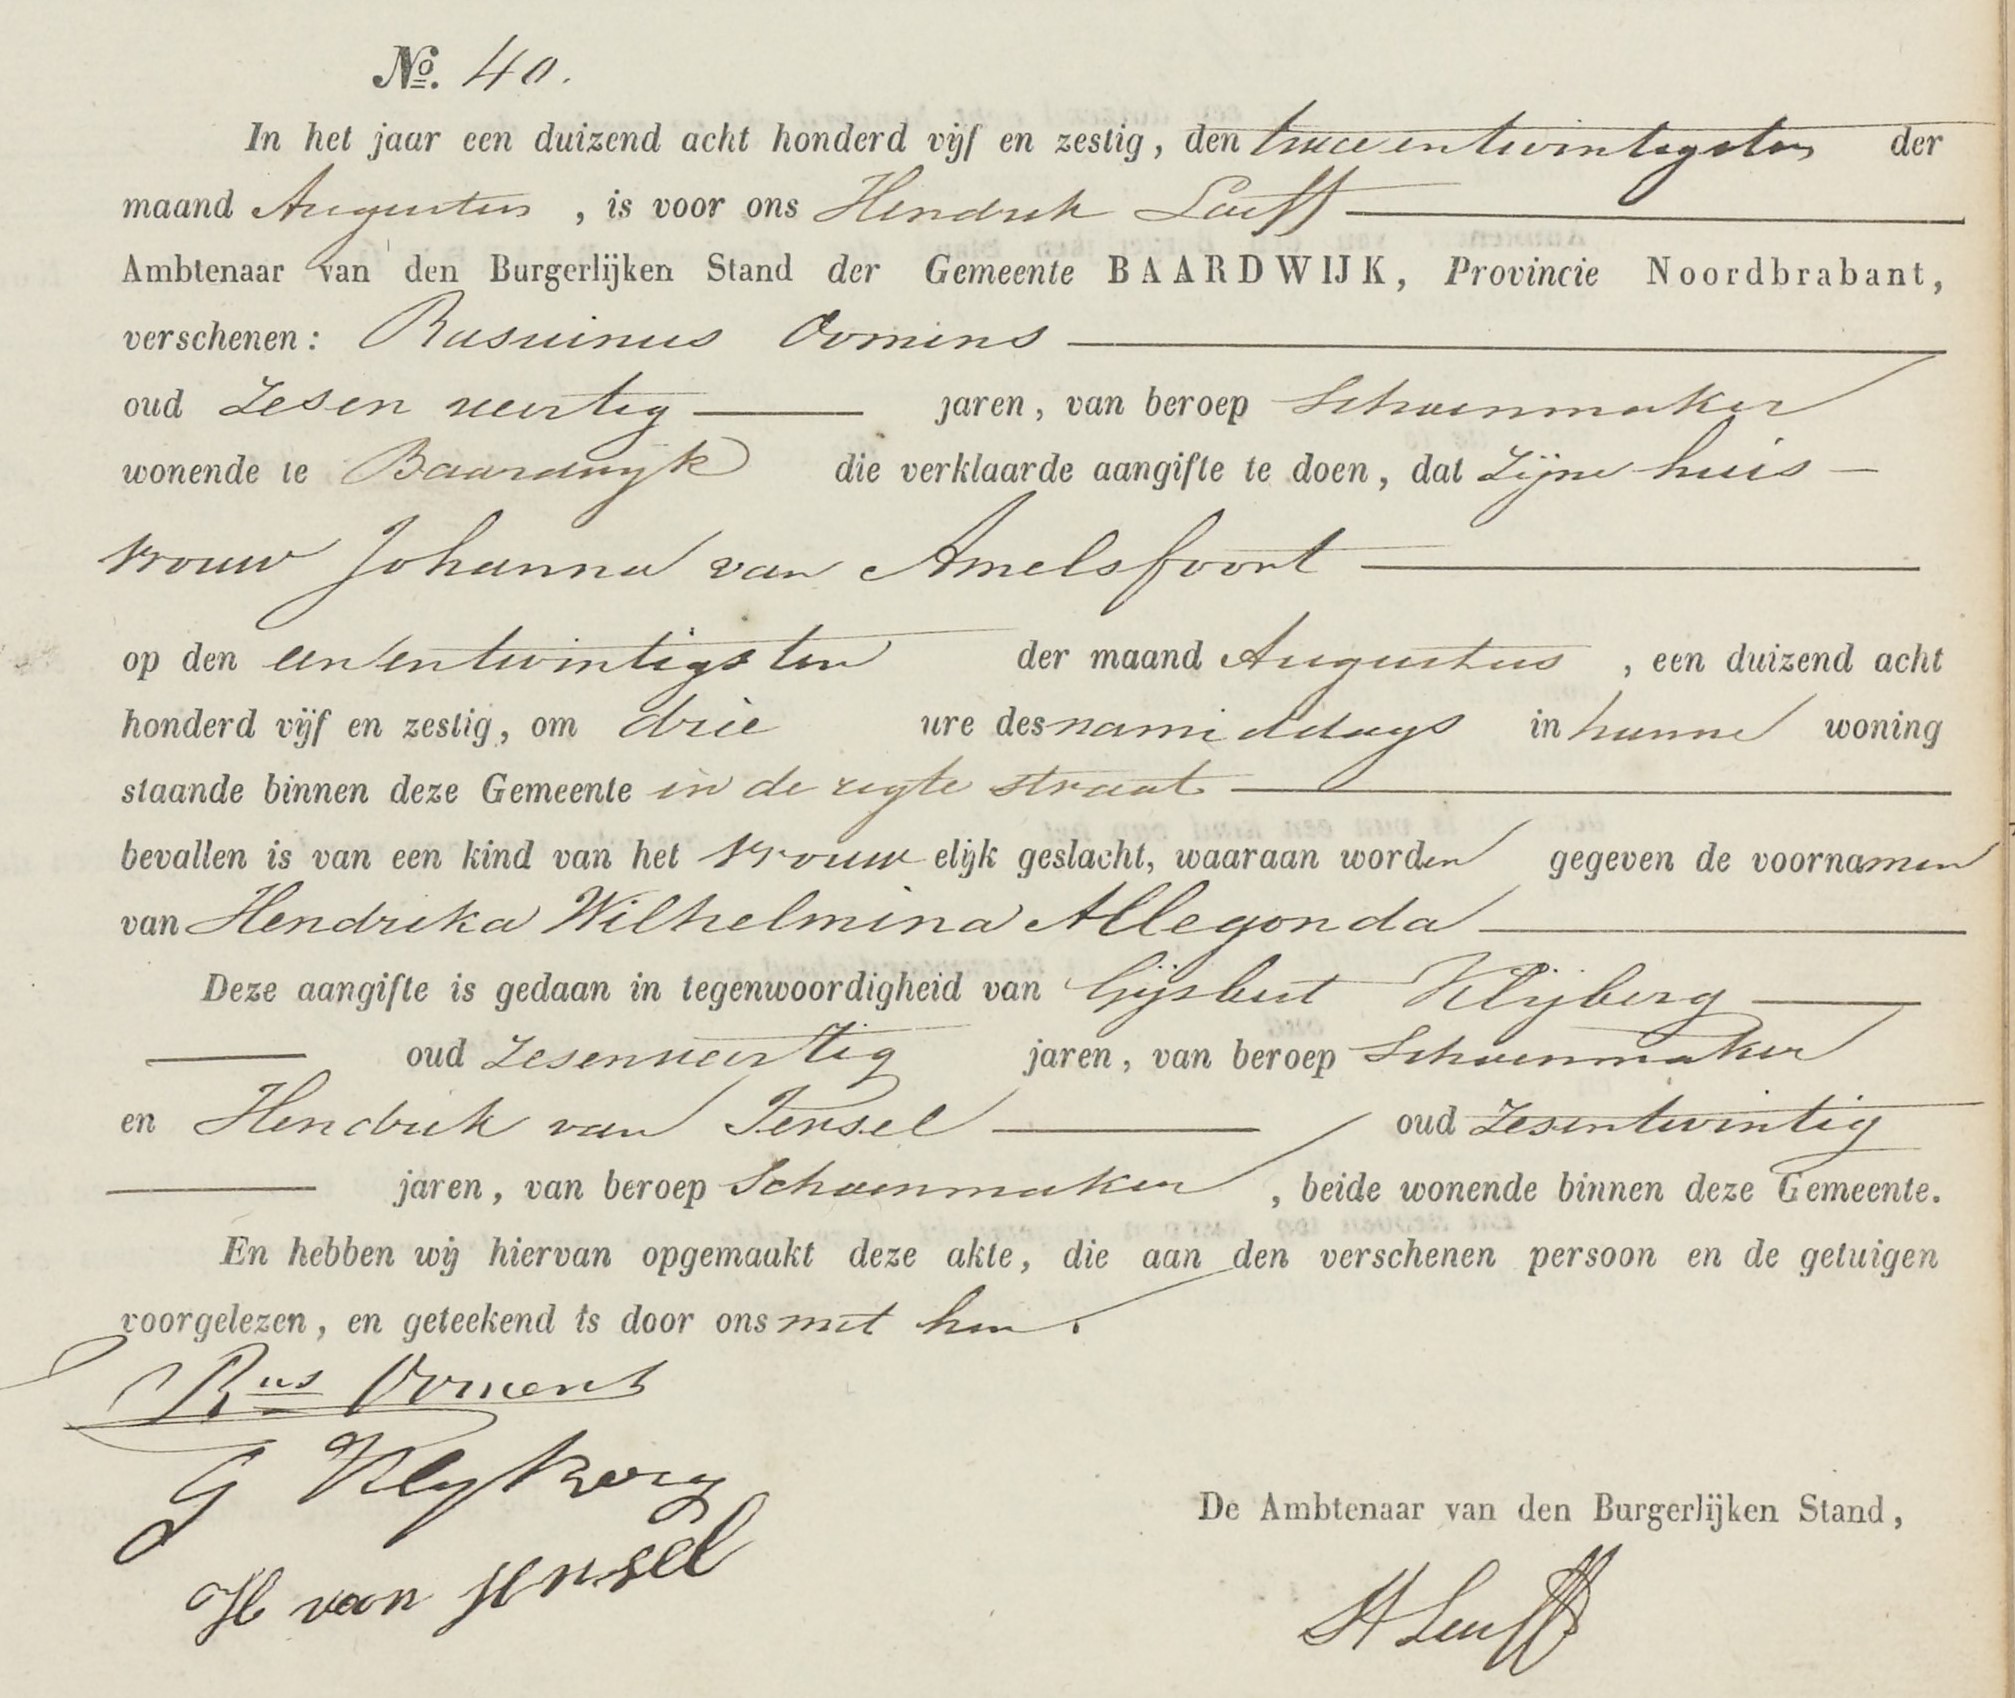 No. 40.
In het jaar een duizend acht honderd vijf en zestig, den twee en twintigsten der
maand Augustus, is voor ons Hendrik Loeff
Ambtenaar van den Burgerlijken Stand der Gemeente BAARDWIJK, Provincie Noordbrabant,
verschenen: Rasuinus Oomens
oud Zesen veertig jaren, van beroep Schoenmaker
wonende te Baardwyk die verklaarde aangifte te doen, dat Zijne huis-
vrouw Johanna van Amelsfoort
op den eenentwintigsten der maand Augustus, een duizend acht
honderd vijf en zestig, om drie ure des namiddags in hunne woning
staande binnen deze Gemeente in de regte straat
bevallen is van een kind van het vrouwelijk geslacht, waaraan worden gegeven de voornamen
van Hendrika Wilhelmina Allegonda
Deze aangifte is gedaan in tegenwoordigheid van Gijsbert Klijberg
oud Zesenveertig jaren, van beroep Schoenmaker
en Hendrik van Iersel oud Zesentwintig
jaren, van beroep Schoenmaker, beide wonende binnen deze Gemeente.
En hebben wij hiervan opgemaakt deze akte, die aan den verschenen persoon en de getuigen
voorgelezen, en geteekend is door ons met hen.
Rus Oomens
G Klyberg
H van Iersel
De Ambtenaar van den Burgerlijken Stand,
H Loeff